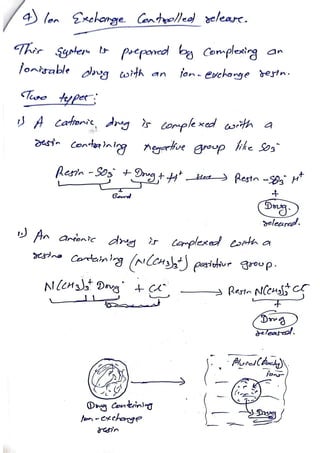 4) Ion Exchange Controlled release.
This system is prepared by complexing an
ionizable drug with an ion-exchange resin.
Two types:
i) A cationic drug is complexed with a
resin containing negative group like SO3⁻
Resin - SO3⁻ + Drug⁺ + H⁺ → Resin - SO3⁻ H⁺
+
Bond
Drug
released.
ii) An anionic drug is complexed with a
resins containing (N(CH3)3⁺) positive group.
N(CH3)3⁺ Drug⁻ + Cl⁻ → Resin N(CH3)3⁺ Cl⁻
+
Drug
released.
Ions
Drug
Drug Containing
Ion-exchange
resin